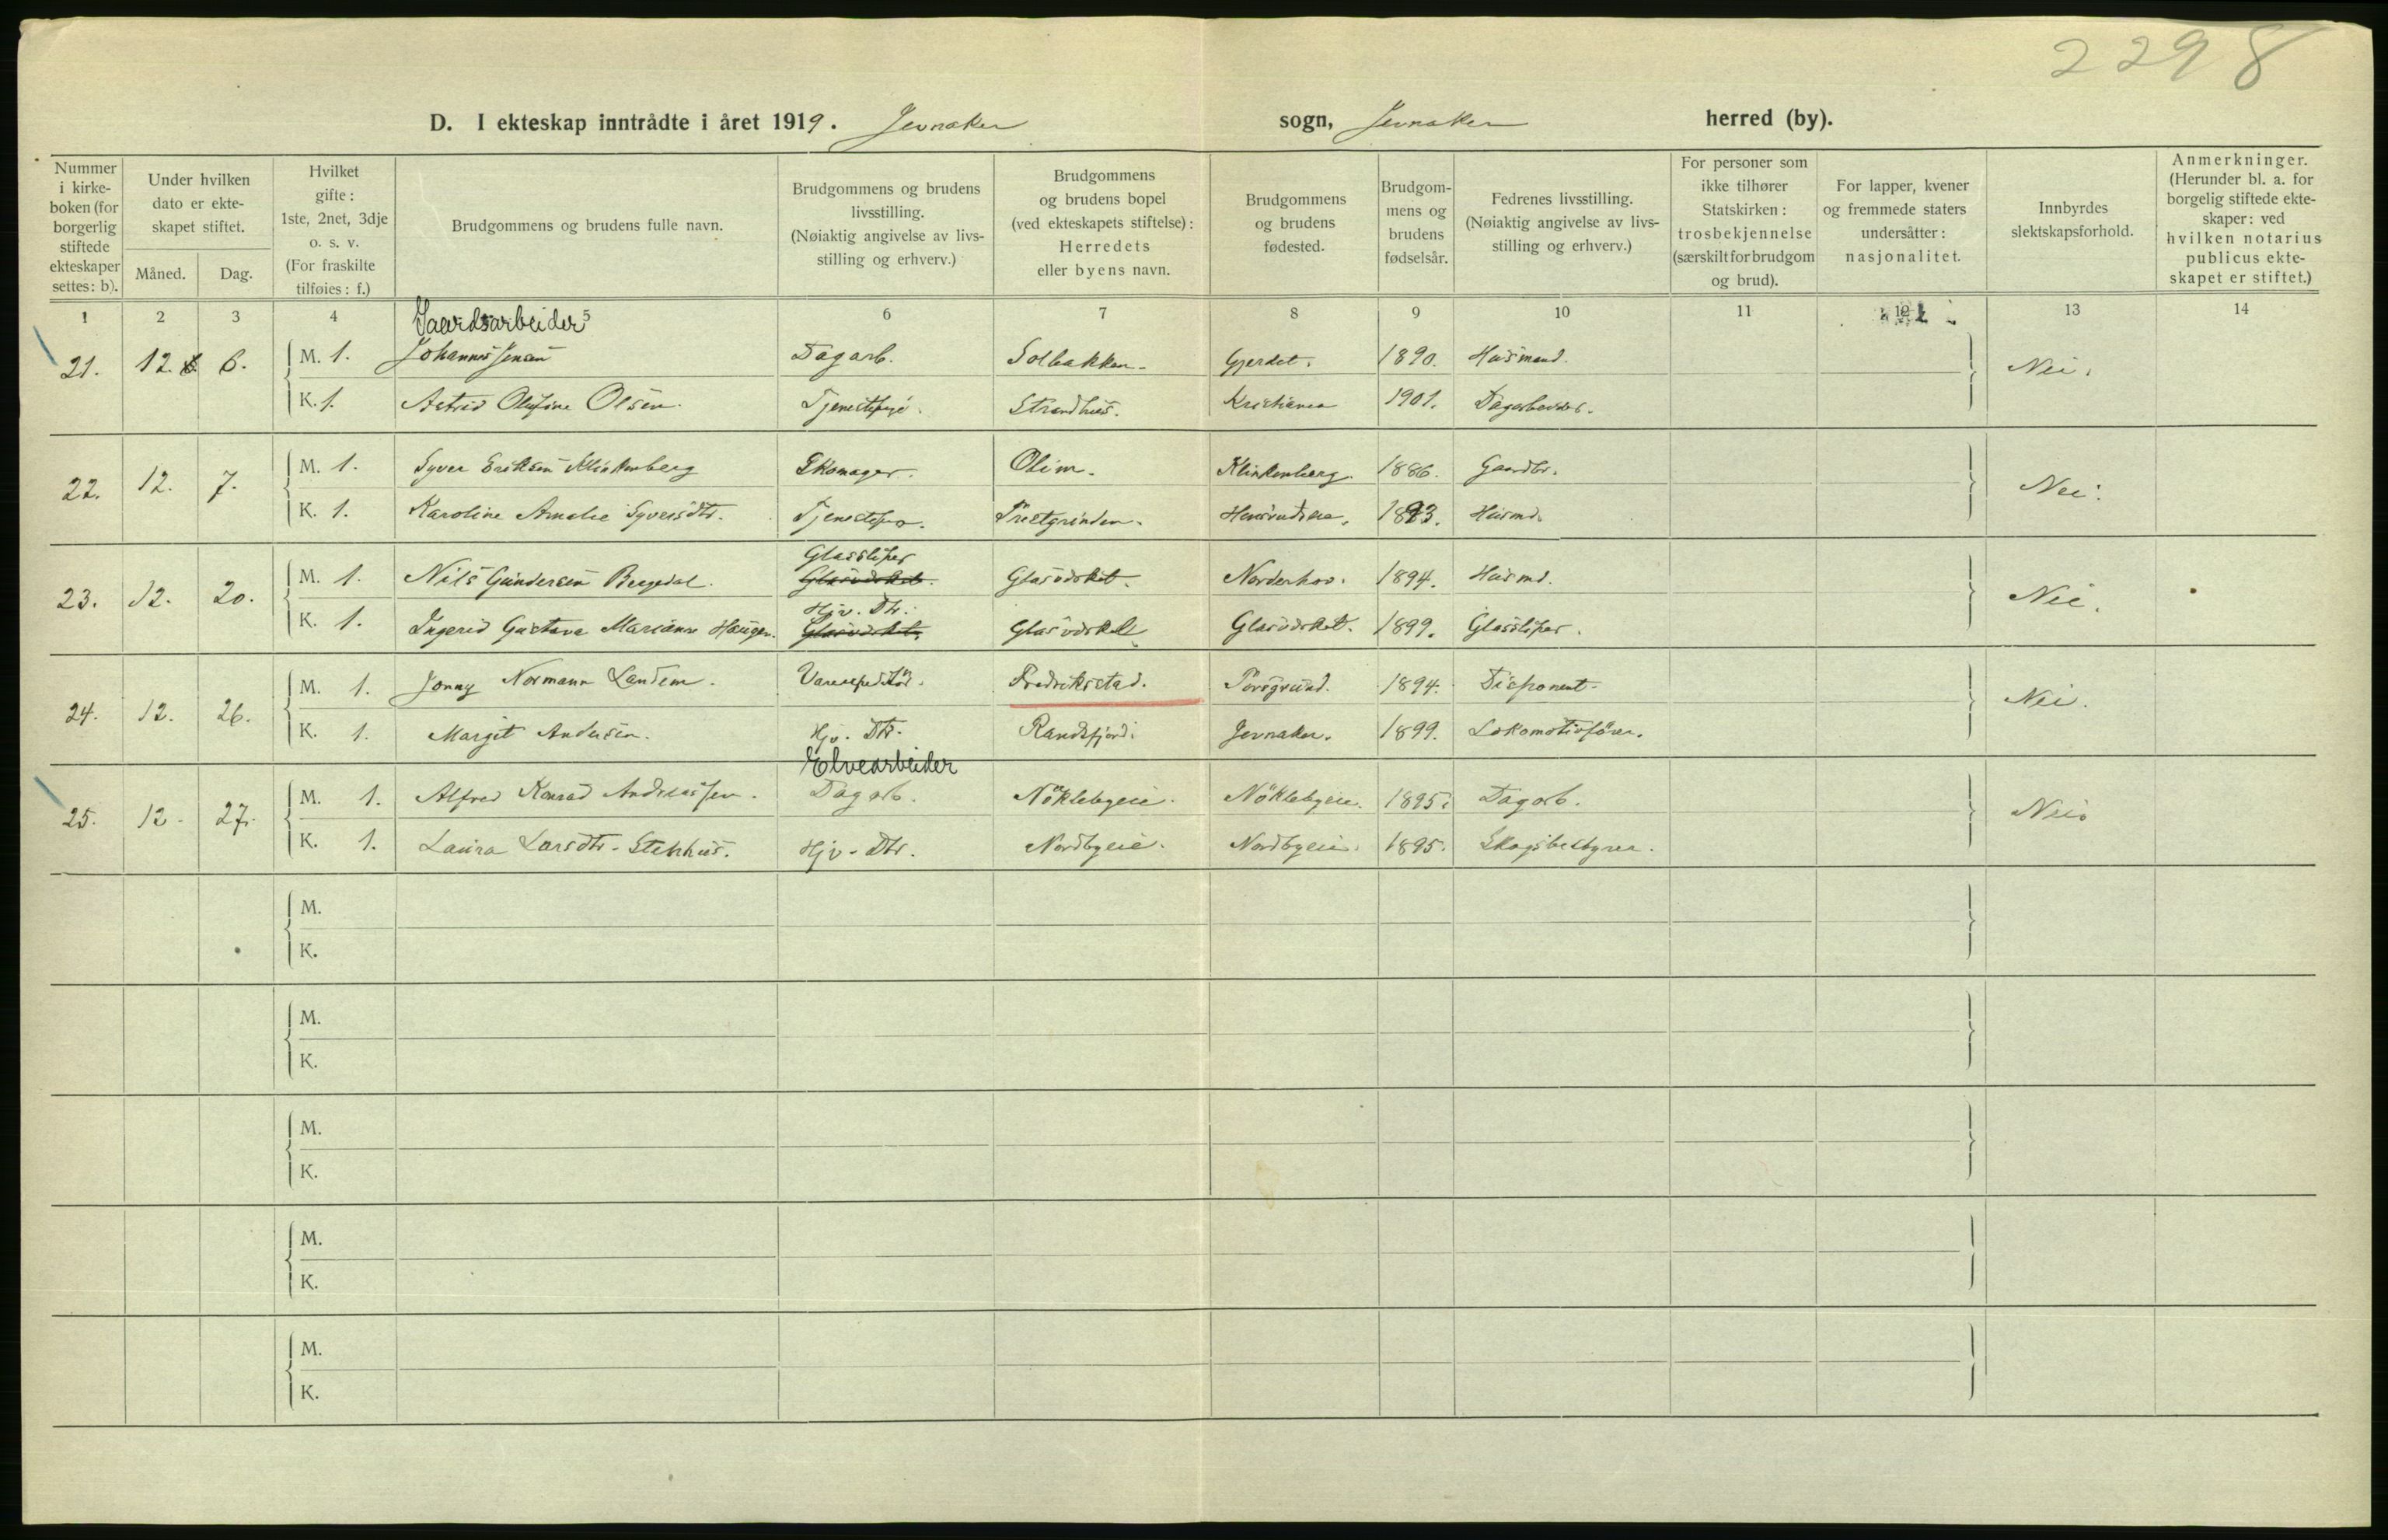 2298
D. I ekteskap inntrådte i året 1919. Jevnaker sogn, Jevnaker herred (by).
Nummer i kirke-boken (for borgerlig stiftede ekteskaper settes: b).
Under hvilken dato er ekte-skapet stiftet.
Måned. Dag.
Hvilket gifte: 1ste, 2net, 3dje o. s. v. (For fraskilte tilføies: f.)
Brudgommens og brudens fulle navn.
Brudgommens og brudens livsstilling. (Nøiaktig angivelse av livs-stilling og erhverv.)
Brudgommens og brudens bopel (ved ekteskapets stiftelse): Herredets eller byens navn.
Brudgommens og brudens fødested.
Brudgom-mens og brudens fødselsår.
Fedrenes livsstilling. (Nøiaktig angivelse av livs-stilling og erhverv.)
For personer som ikke tilhører Statskirken: trosbekjennelse (særskilt for brudgom og brud).
For lapper, kvener og fremmede staters undersåtter: nasjonalitet.
Innbyrdes slektskapsforhold.
Anmerkninger. (Herunder bl. a. for borgelig stiftede ekte-skaper: ved hvilken notarius publicus ekte-skapet er stiftet.)
1 2 3 4 5 6 7 8 9 10 11 12 13 14
Gaardsarbeider
21. 12. 6. M. 1. Johannes Jensen Dagarb. Solbakken. Gjerdet. 1890. Husmand. Nei.
K. 1. Astrid Olufine Olsen. Tjenestepige. Strandhus. Kristiania 1901. Dagarbeider.
22. 12. 7. M. 1. Syver Eriksen Klinkenberg Skomager. Olim. Klinkenberg. 1886. Gaardbr. Nei.
K. 1. Karoline Amalie Syversdtr. Tjenestepg. Prestgrinden. 1883. Husmd.
Glassliper
23. 12. 20. M. 1. Nils Gundersen Bergedal. Glasværket. Glasværket. Norderhov. 1894. Husmd. Nei.
Hjv. Dtr.
K. 1. Ingerid Gustava Marianne Haugen. Glasværket. Glasværket. Glasværket. 1899. Glassliper.
24. 12. 26. M. 1. Jonny Normann Landem. Fredriksstad. Porsgrund. 1894. Disponent. Nei.
K. 1. Margit Andersen. Hjv. Dtr. Randsfjord. Jevnaker. 1899. Lokomotivfører.
Elvearbeider
25. 12. 27. M. 1. Alfred Konrad Andreassen. Dagarb. Nöklebyeie. Nöklebyeie. 1895. Dagarb. Nei.
K. 1. Laura Larsdtr. Stenhus. Hjv. Dtr. Nordbyeie. Nordbyeie. 1895. Skogsbestyrer.
M.
K.
M.
K.
M.
K.
M.
K.
M.
K.